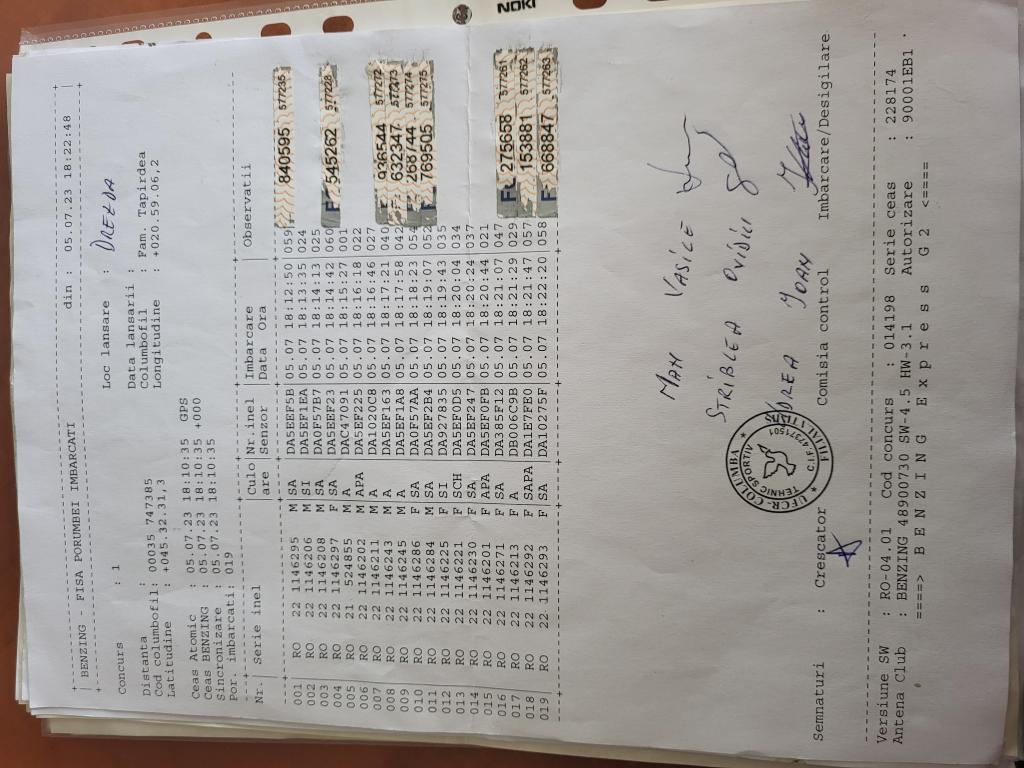 NOKI
BENZING - FISA PORUMBEI IMBARCATI din : 05.07.23 18:22:48
Concurs : 1 Loc lansare : DRELDA
Distanta : Data lansarii :
Cod columbofil: 00035 747385 Columbofil : Fam. Tapirdea
Latitudine : +045.32.31,3 Longitudine : +020.59.06,2
Ceas Atomic : 05.07.23 18:10:35 GPS
Ceas BENZING : 05.07.23 18:10:35 +000
Sincronizare : 05.07.23 18:10:35
Por. imbarcati: 019
Nr. Serie inel Culo Nr.inel Imbarcare Observatii
are Senzor Data Ora
001 RO 22 1146295 M SA DA5EEF5B 05.07 18:12:50 059 840595 577235
002 RO 22 1146206 M SI DA5EF1EA 05.07 18:13:35 024
003 RO 22 1146208 M SA DA0F57B7 05.07 18:14:13 025
004 RO 22 1146297 F SA DA5EEF23 05.07 18:14:42 060 545262 577228
005 RO 21 524855 M A DAC47091 05.07 18:15:27 001
006 RO 22 1146202 M APA DA5EF225 05.07 18:16:18 022
007 RO 22 1146211 M A DA1020C8 05.07 18:16:46 027
008 RO 22 1146243 M A DA5EF163 05.07 18:17:21 040 936544 577272
009 RO 22 1146245 M A DA5EF1A8 05.07 18:17:58 042 632347 577273
010 RO 22 1146286 F SA DA0F57AA 05.07 18:18:23 054 268744 577274
011 RO 22 1146284 M SA DA5EF2B4 05.07 18:19:07 052 769505 577275
012 RO 22 1146225 F SI DA927835 05.07 18:19:43 035
013 RO 22 1146221 F SCH DA5EF0D5 05.07 18:20:04 034
014 RO 22 1146230 F SA DA5EF247 05.07 18:20:24 037
015 RO 22 1146201 F APA DA5EF0FB 05.07 18:20:44 021
016 RO 22 1146271 F SA DA385F12 05.07 18:21:07 047 275658 577261
017 RO 22 1146213 F A DB006C9B 05.07 18:21:29 029 153881 577262
018 RO 22 1146292 F SAPA DA1E7FE0 05.07 18:21:47 057 668847 577263
019 RO 22 1146293 F SA DA10275F 05.07 18:22:20 058
MAN VASILE
STRIBLEA OVIDIU
IOAN
UFCR-COLUMBA
TEHNIC SPORTIV
Semnaturi : Crescator Comisia control Imbarcare/Desigilare
Versiune SW : RO-04.01 Cod concurs : 014198 Serie ceas : 228174
Antena Club : BENZING 48900730 SW-4.5 HW-3.1 Autorizare : 90001EB1
====> B E N Z I N G E x p r e s s G 2 <====